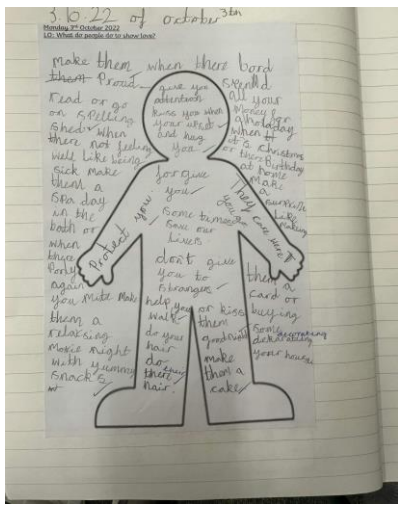 3.10.22 of october 3th
Monday 3rd October 2022
LO: What do people do to show love?
make them when there bord
them Proud
read or go
on spelling
shed when
there not feeling
well like being
sick make
them a
spa day
in the
bath or
when
there
Poorly
again
you mite make
them a
relaxing
movie night
with yummy
snacks
give you
attention
kiss you when
your upset
and hug
you
forgive
you
some times
save our
lives
Protect you
They care
don't give
you to
strangers
help you
walk
do your
hair
do
there
hair
or kiss
them
goodnight
make
them a
cake
spend
all your
money
on a holiday
when
it's christmas
or there Birthday
at home
make
a
like
making
them a
card or
buying
some
decorating
your house